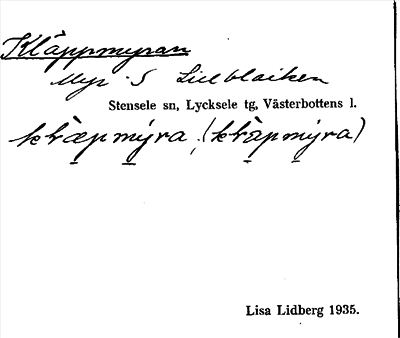 Kläppmyran
Myr S Lillblaiken
Stensele sn, Lycksele tg, Västerbottens l.
Lisa Lidberg 1935.